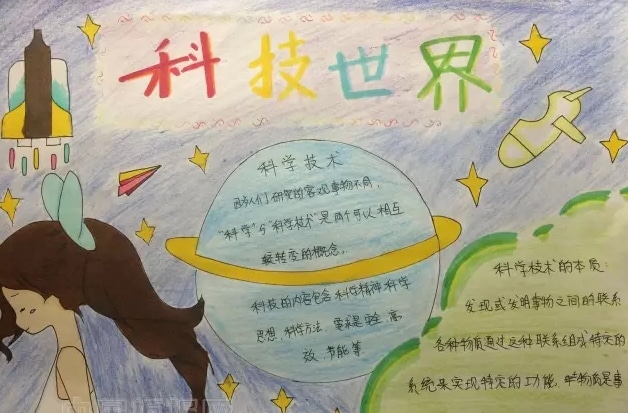 科技世界
科学技术
人们研究的客观事物不同，
"科学"与"科学技术"是两个可以相互
转变的概念。
科技的内容包含科学精神科学
思想、科学方法、安全、高
效、节能等
科学技术的本质：
发现或发明事物之间的联系
各种物质通过这种联系组成特定的
系统来实现特定的功能，物质是事